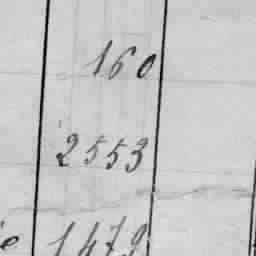 160
2553
1479